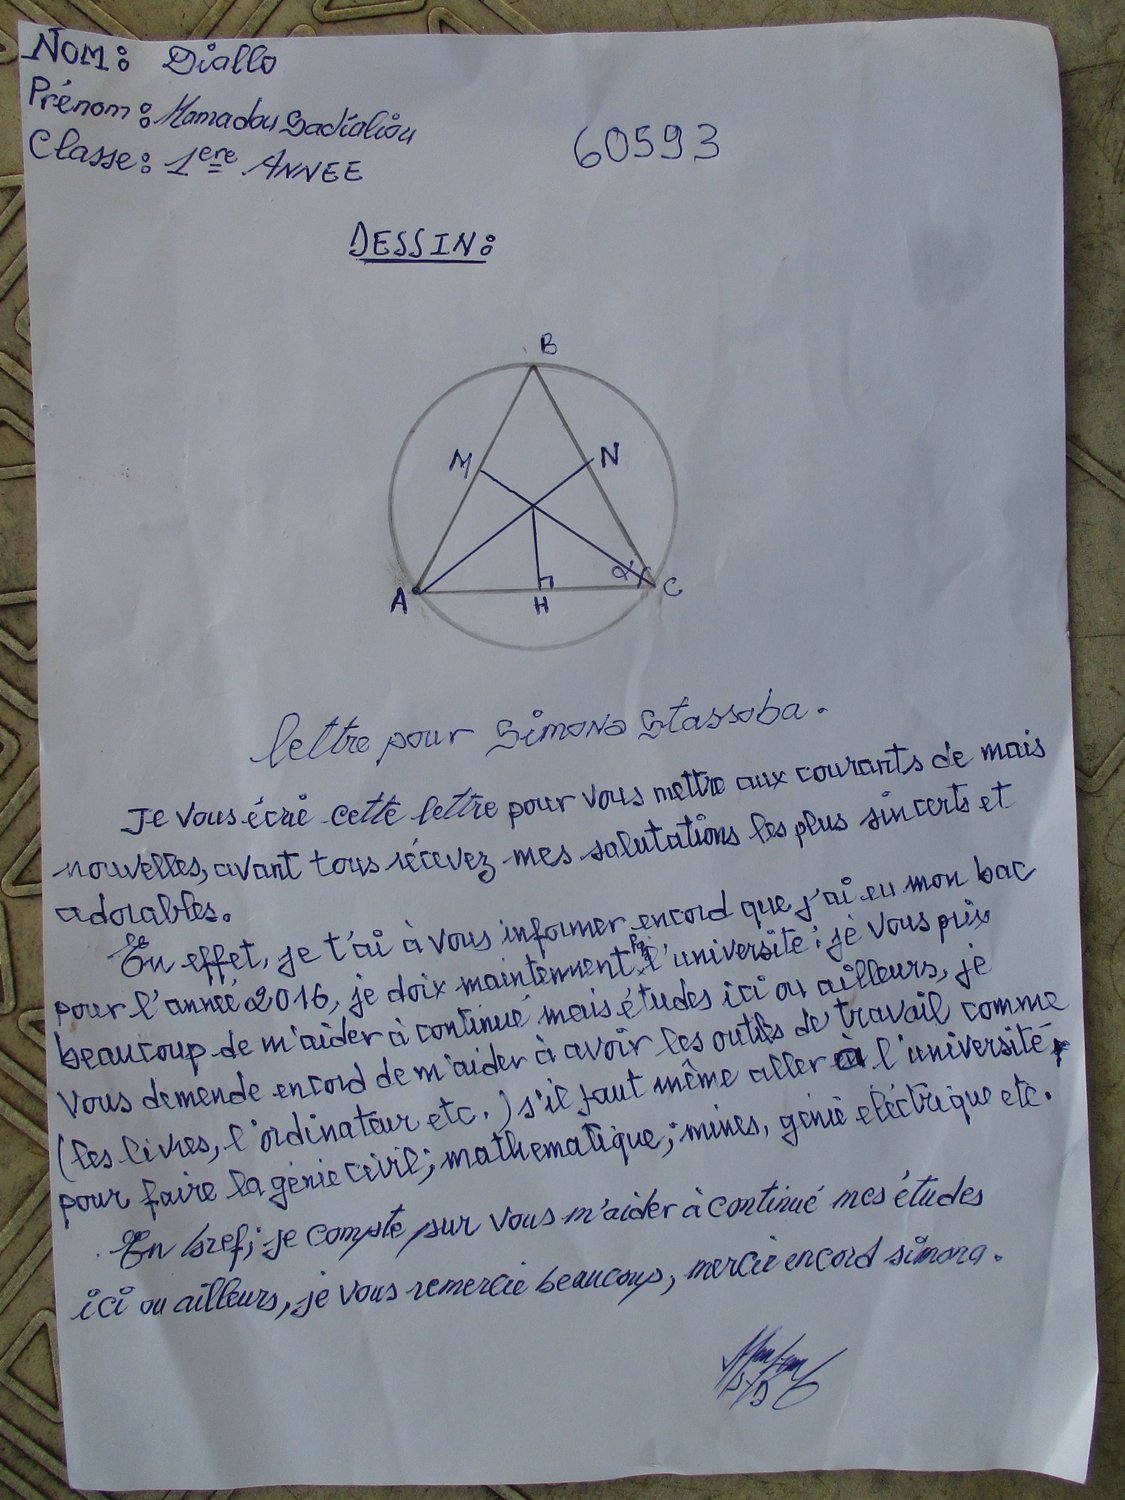 NOM: Diallo
Prénom: Mamadou Sadialiou
Classe: 1ere ANNEE
60593
DESSIN:
B
M
N
A
H
α
C
lettre pour Simona Stassoba.
Je vous écrié cette lettre pour vous mettre aux courants de mais
nouvelles, avant tous récevez mes salutations les plus sincerts et
adorables.
En effet, je t'ai à vous informer encord que j'ai eu mon bac
pour l'année 2016, je doix maintennent l'université; je vous prix
beaucoup de m'aider à continué mais études ici ou ailleurs, je
vous demende encord de m'aider à avoir les outils de travail comme
(les livres, l'ordinateur etc.) s'il faut même aller à l'université
pour faire la génie civil; mathematique; mines, génie eléctrique etc.
En bref; je compte sur vous m'aider à continué mes études
ici ou ailleurs, je vous remercie beaucoup, mercie encord simona.